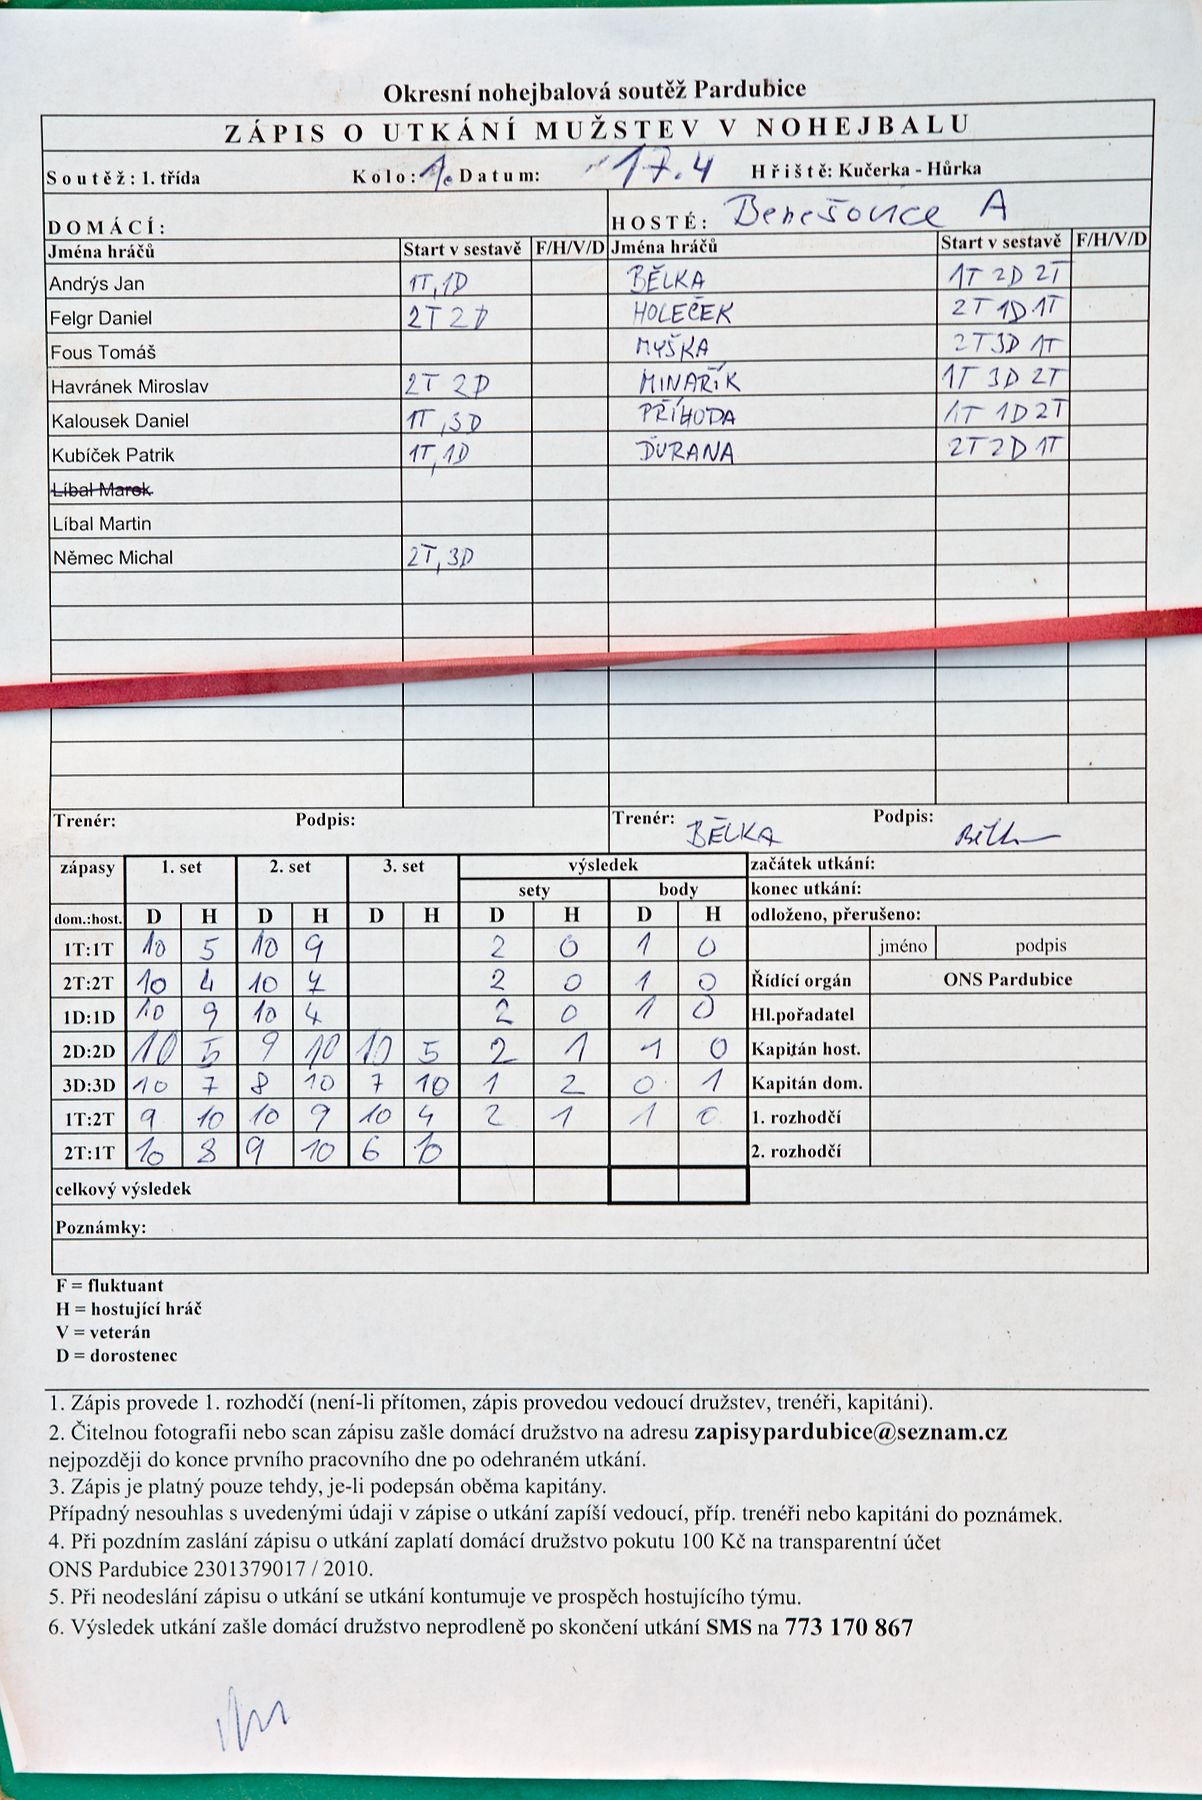 Okresní nohejbalová soutěž Pardubice
ZÁPIS O UTKÁNÍ MUŽSTEV V NOHEJBALU
Soutěž: 1. třída Kolo: 1. Datum: 17.4 Hřiště: Kučerka - Hůrka
DOMÁCÍ: HOSTÉ: Benešovice A
Jména hráčů Start v sestavě F/H/V/D Jména hráčů Start v sestavě F/H/V/D
Andrýs Jan 1T,1D BĚLKA 1T 2D 2T
Felgr Daniel 2T 2D HOLEČEK 2T 1D 1T
Fous Tomáš MYŠKA 2T 3D 1T
Havránek Miroslav 2T 2D MINAŘÍK 1T 3D 2T
Kalousek Daniel 1T,3D PŘÍHODA 1T 1D 2T
Kubíček Patrik 1T,1D ĎURANA 2T 2D 1T
Líbal Marek
Líbal Martin
Němec Michal 2T,3D
Trenér: Podpis: Trenér: BĚLKA Podpis:
zápasy 1. set 2. set 3. set výsledek začátek utkání:
sety body konec utkání:
dom.:host. D H D H D H D H D H odloženo, přerušeno:
1T:1T 10 5 10 9 2 0 1 0 jméno podpis
2T:2T 10 4 10 7 2 0 1 0 Řídící orgán ONS Pardubice
1D:1D 10 9 10 4 2 0 1 0 Hl.pořadatel
2D:2D 10 5 9 10 10 5 2 1 1 0 Kapitán host.
3D:3D 10 7 8 10 7 10 1 2 0 1 Kapitán dom.
1T:2T 9 10 10 9 10 4 2 1 1 0 1. rozhodčí
2T:1T 10 8 9 10 6 10 2. rozhodčí
celkový výsledek
Poznámky:
F = fluktuant
H = hostující hráč
V = veterán
D = dorostenec
1. Zápis provede 1. rozhodčí (není-li přítomen, zápis provedou vedoucí družstev, trenéři, kapitáni).
2. Čitelnou fotografii nebo scan zápisu zašle domácí družstvo na adresu zapisypardubice@seznam.cz
nejpozději do konce prvního pracovního dne po odehraném utkání.
3. Zápis je platný pouze tehdy, je-li podepsán oběma kapitány.
Případný nesouhlas s uvedenými údaji v zápise o utkání zapíší vedoucí, příp. trenéři nebo kapitáni do poznámek.
4. Při pozdním zaslání zápisu o utkání zaplatí domácí družstvo pokutu 100 Kč na transparentní účet
ONS Pardubice 2301379017 / 2010.
5. Při neodeslání zápisu o utkání se utkání kontumuje ve prospěch hostujícího týmu.
6. Výsledek utkání zašle domácí družstvo neprodleně po skončení utkání SMS na 773 170 867